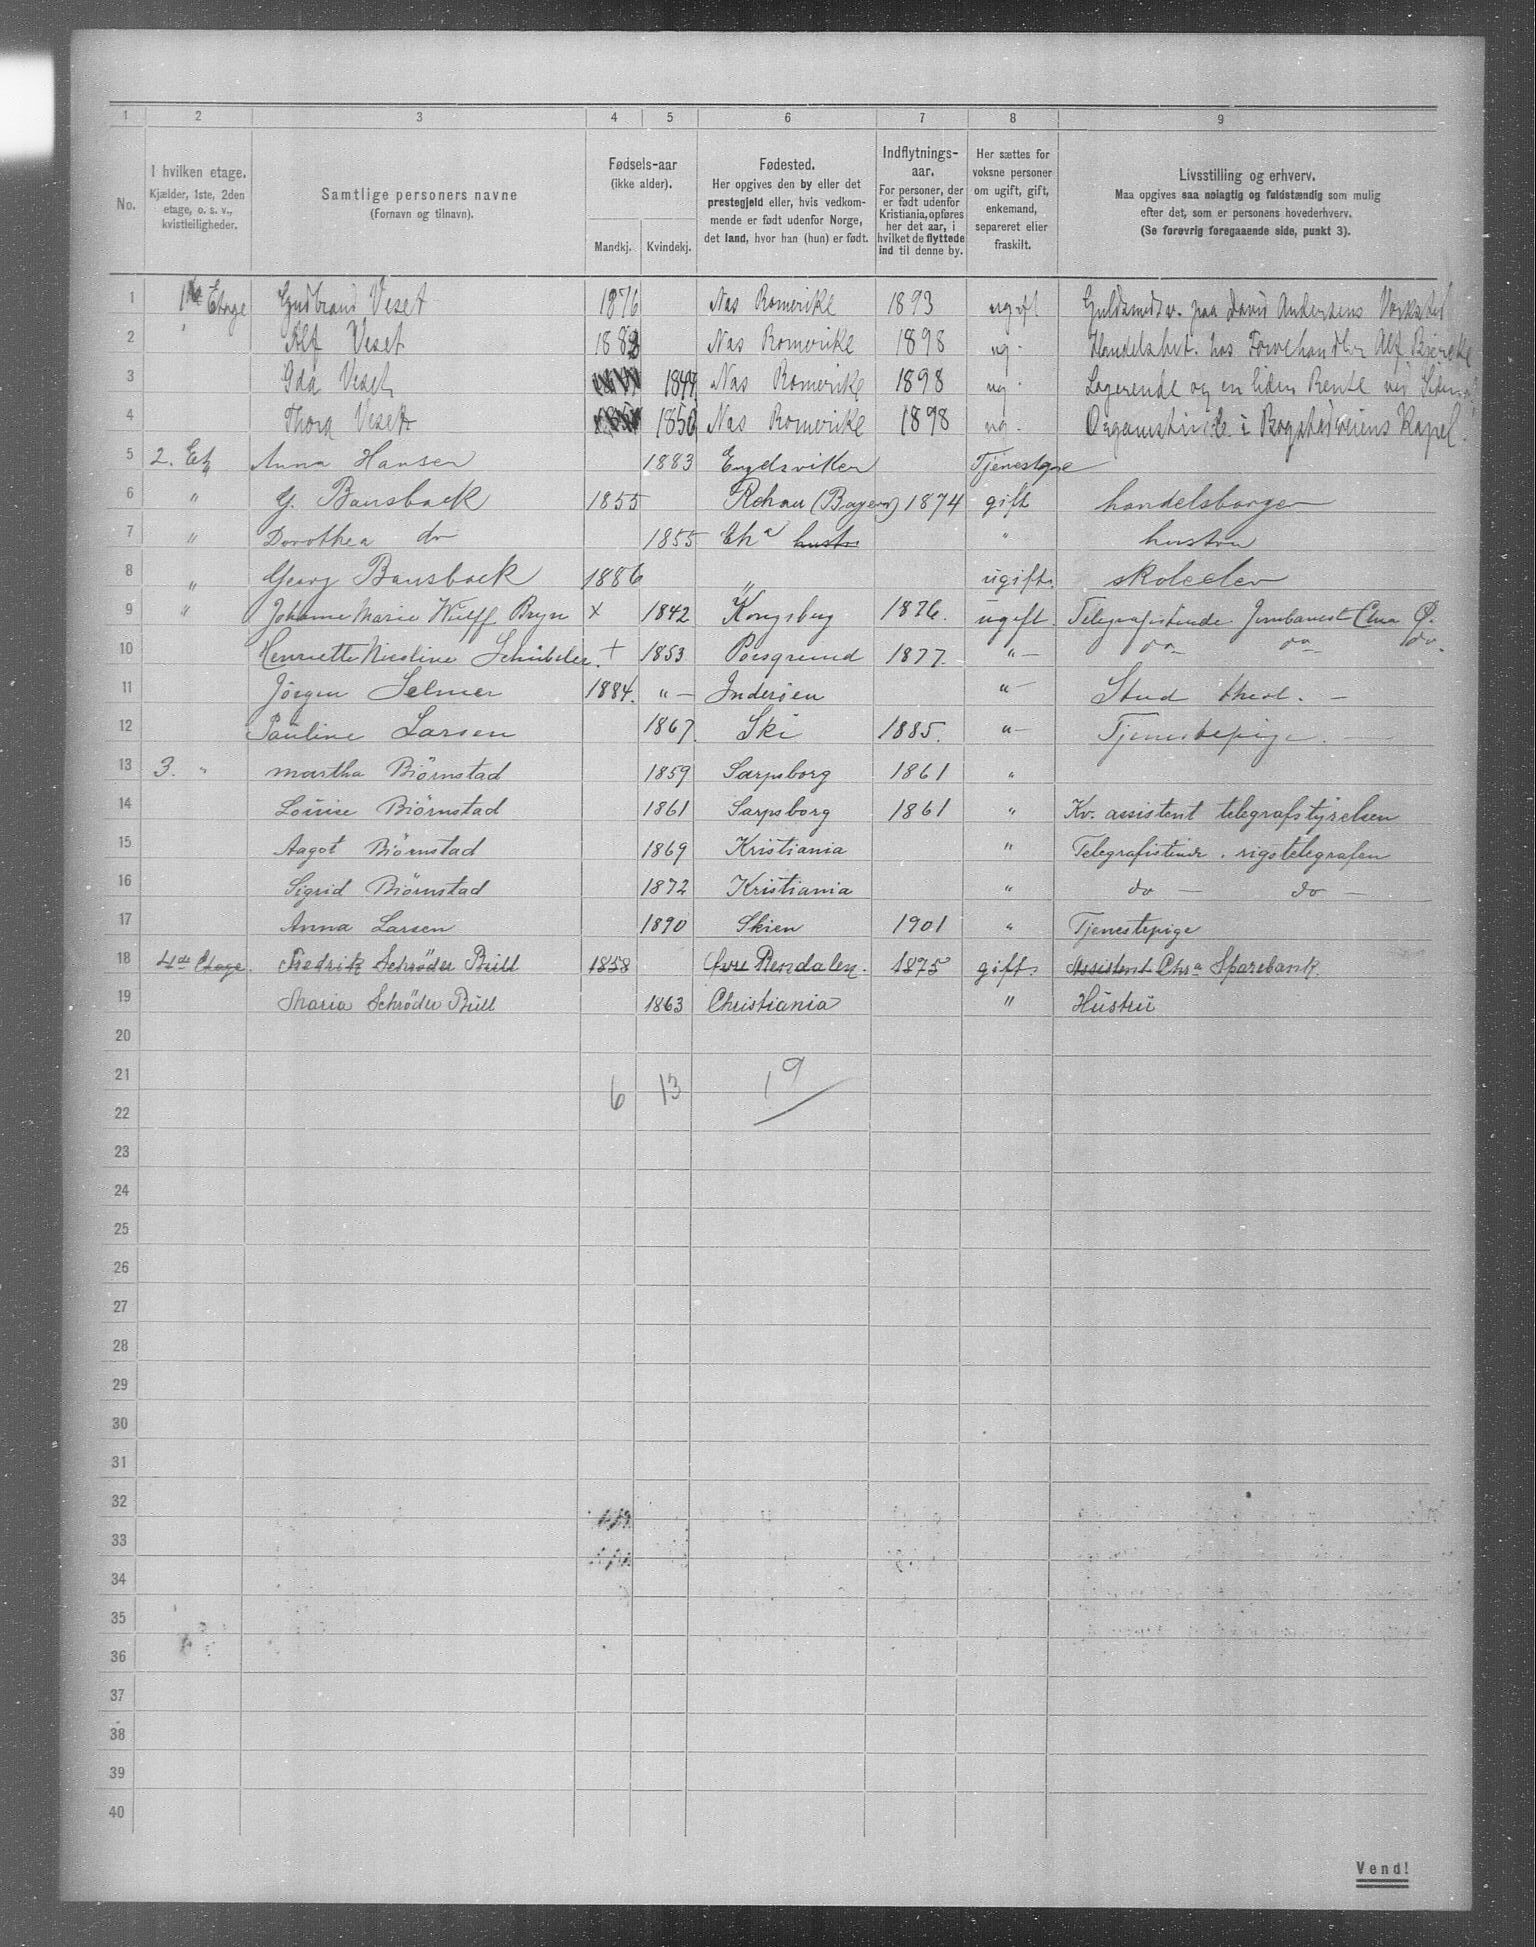 1 2 3 4 5 6 7 8 9
No.
I hvilken etage.
Kjælder, 1ste, 2den
etage, o. s. v.,
kvistleiligheder.
Samtlige personers navne
(Fornavn og tilnavn).
Fødsels-aar
(ikke alder).
Mandkj. Kvindekj.
Fødested.
Her opgives den by eller det
prestegjeld eller, hvis vedkom-
mende er født udenfor Norge,
det land, hvor han (hun) er født.
Indflytnings-
aar.
For personer, der
er født udenfor
Kristiania, opføres
her det aar, i
hvilket de flyttede
ind til denne by.
Her sættes for
voksne personer
om ugift, gift,
enkemand,
separeret eller
fraskilt.
Livsstilling og erhverv.
Maa opgives saa nøiagtig og fuldstændig som mulig
efter det, som er personens hovederhverv.
(Se forøvrig foregaaende side, punkt 3).
1 1ste Etage Gudbrand Veset 1876 Nas Romerike 1893 ugift Guldsmedsv. paa David Andersens Værksted
2 " Alf Veset 1882 Nas Romerike 1898 ug. Handelsbet. hos Farvehandler Alf Bjercke
3 Ida Veset 1844 Nas Romerike 1898 ug. Logerende og en liden Rente
4 Thora Veset 1850 Nas Romerike 1898 ug. Organistinde i Bogstadveiens Kapel.
5 2. Et. Anna Hansen 1883 Engelsviken Tjenestepe
6 " G. Bansback 1855 Rehau (Bayern) 1874 gift handelsborger
7 " Dorothea do 1855 Cha hustr. " hustru
8 " Georg Bansback 1886 " ugift. skoleelev
9 " Johanne Marie Wulff Bryn x 1842 Kongsberg 1876. ugift. Telegrafistinde Jernbanest Chra Ø.
10 Henriette Nicoline Schübeler. + 1853 Porsgrund 1877. "— do— do— do.
11 Jörgen Selmer 1884. "— Inderøen "— Stud theol. —
12 Pauline Larsen 1867. Ski 1885. "— Tjenestepige. —
13 3. " Martha Biørnstad 1859 Sarpsborg 1861 "
14 Louise Biørnstad 1861 Sarpsborg 1861 " Kv. assistent telegrafstyrelsen
15 Aagot Biørnstad 1869 Kristiania " Telegrafistinde . rigstelegrafen
16 Sigrid Biørnstad 1872 Kristiania " do — do —
17 Anna Larsen 1890 Skien 1901 " Tjenestepige
18 4de Etage. Fredrik Schrøder Bull 1858 Øvre Rendalen. 1875 gift. Assistent Chra Sparebank.
19 Maria Schröder Bull 1863 Christiania " Hüstrü
20
21 6 13 19
22
23
24
25
26
27
28
29
30
31
32
33
34
35
36
37
38
39
40
Vend!